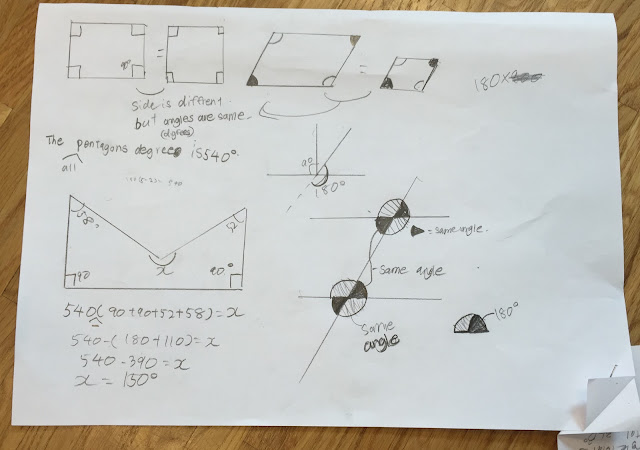 90°
=
=
180×
side is diffrent.
but angles are same.
(dgrees)
The pentagons degree is 540°.
all
90
180°
58°
52
x
90
90°
= same angle.
same angle
same
angle
180°
540(90+90+52+58)=x
-
540-(180+110)=x
540-390=x
x = 150°